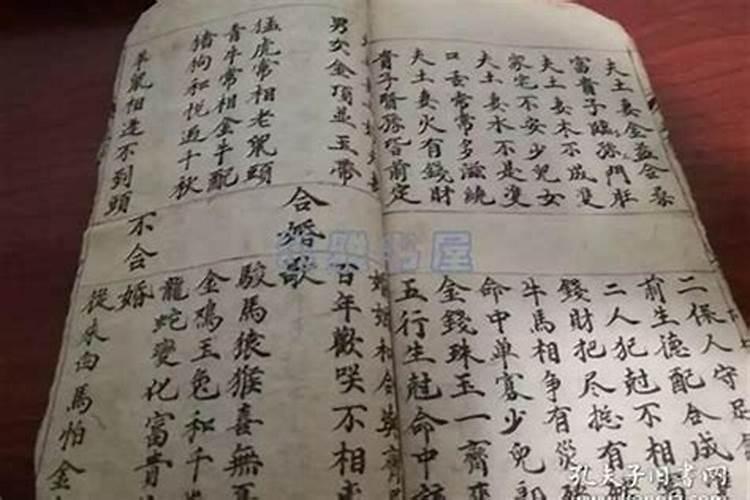 夫土妻金益合
富貴子臨孫門
夫土妻木不成雙
家宅不安少兒女
夫土妻水不是雙
口舌常常多滋繞
夫土妻火有錢財
貴子賢孫皆前定
二保人守足
前生德配合成
二人犯尅不相
錢財把尽挺有
牛馬相争有災
命中单寡少兒郎
金錢珠玉一齊來
五行生尅命中
婚姻和合莫
男女金頂並玉帶
百年歡咲不相
合婚歌
猛虎常相老鼠頭
青牛常相金牛配
猪狗和悦過千秋
駿馬猿猴喜無
金鸡玉兔和千
龍蛇變化富貴
不合婚
羊鼠相逢不到頭
從來白馬怕金
孔夫子旧書网